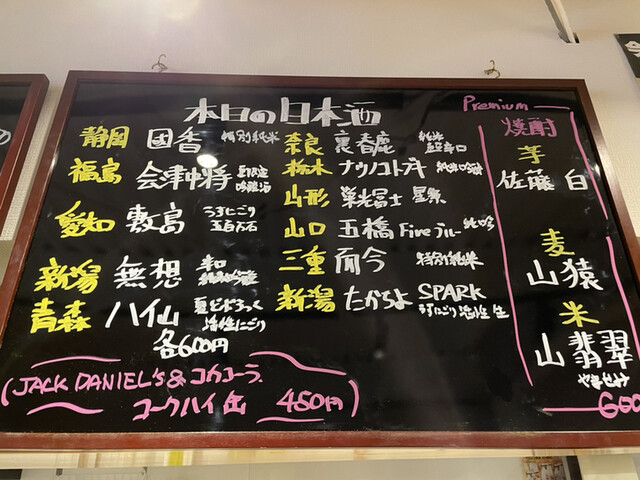 本日の日本酒
静岡 國香 特別純米
福島 会津中将 吟醸酒
愛知 敷島 うすにごり 五百万石
新潟 無想 辛口
青森 ハ仙 夏どぶろっく 活性にごり
各600円
奈良 裏春鹿 純米 超辛口
栃木 ナウノコトブキ 純米吟醸
山形 栄光冨士 星祭
山口 五橋 Five ブルー 純吟
三重 而今 特別純米
新潟 たかちよ SPARK うすにごり 活性 生
Premium
焼酎
芋
佐藤 白
麦
山猿
米
山翡翠
やませみ
600
JACK DANIEL'S & コカコーラ
コークハイ缶 450円